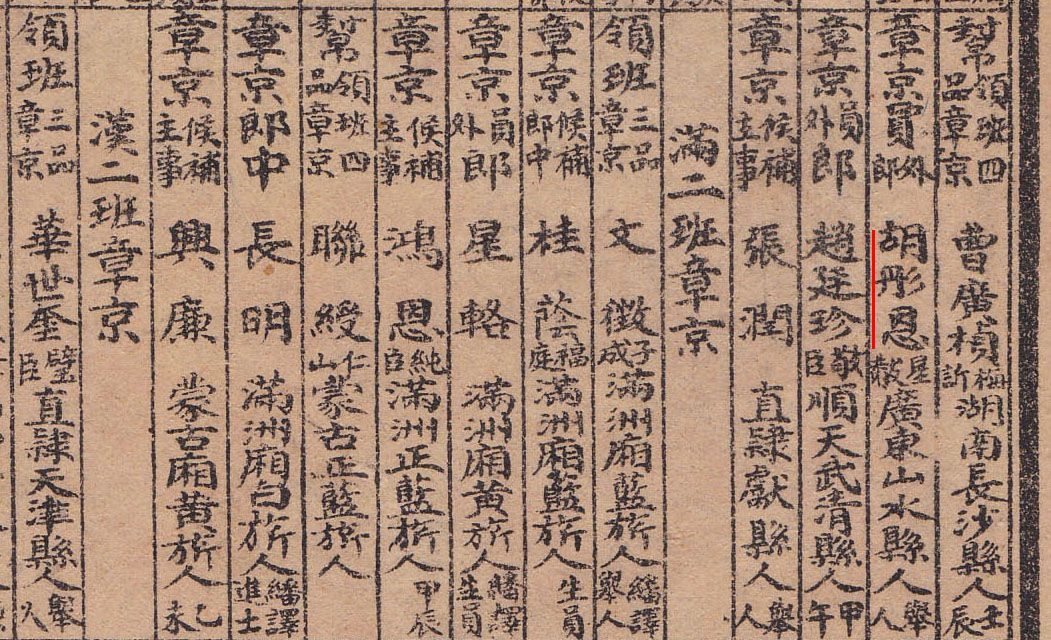 幫領班四品章京 曹廣楨 梅訢 湖南長沙縣人 壬辰
章京員外郎 胡彤恩 星 廣東山水縣人 舉人
章京員外郎 趙廷珍 敬臣 順天武清縣人 甲午
章京候補主事 張潤 直隸獻縣人 舉人
滿二班章京
領班三品章京 文徵 子成 滿洲廂藍旂人 繙譯舉人
章京候補郎中 桂蔭 福庭 滿洲廂藍旂人 生員
章京員外郎 星輅 滿洲廂黃旂人 繙譯生員
章京候補主事 鴻恩 純臣 滿洲正藍旂人 甲辰
幫領班四品章京 聯綬 仁山 蒙古正藍旂人
章京郎中 長明 滿洲廂白旂人 繙譯進士
章京候補主事 興廉 蒙古廂黃旂人 乙未
漢二班章京
領班三品章京 華世奎 璧臣 直隸天津縣人 舉人